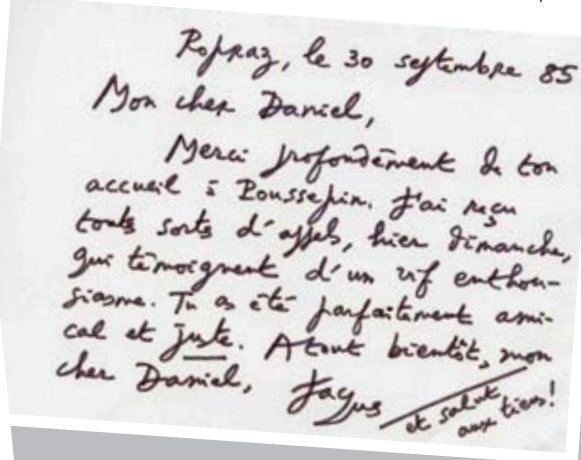 Ropraz, le 30 septembre 85
Mon cher Daniel,
Merci profondément de ton
accueil à Roussepin. J'ai reçu
touts sorts d'appels, hier dimanche,
qui témoignent d'un vif enthou-
siasme. Tu as été parfaitement ami-
cal et juste. A tout bientôt, mon
cher Daniel, Jacques
et salut
aux tiens!